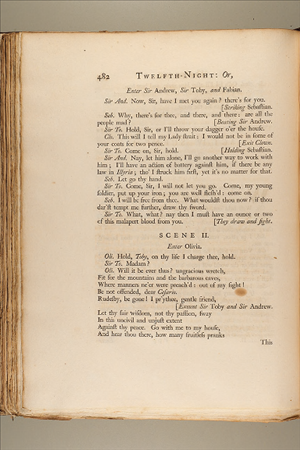 482 TWELFTH-NIGHT: Or,
Enter Sir Andrew, Sir Toby, and Fabian.
Sir And. Now, Sir, have I met you again? there's for you.
[Striking Sebastian.
Seb. Why, there's for thee, and there, and there: are all the
people mad? [Beating Sir Andrew.
Sir To. Hold, Sir, or I'll throw your dagger o'er the house.
Clo. This will I tell my Lady strait: I would not be in some of
your coats for two pence. [Exit Clown.
Sir To. Come on, Sir, hold. [Holding Sebastian.
Sir And. Nay, let him alone, I'll go another way to work with
him; I'll have an action of battery against him, if there be any
law in Illyria; tho' I struck him first, yet it's no matter for that.
Seb. Let go thy hand.
Sir To. Come, Sir, I will not let you go. Come, my young
soldier, put up your iron; you are well flesh'd: come on.
Seb. I will be free from thee. What wouldst thou now? if thou
dar'st tempt me further, draw thy sword.
Sir To. What, what? nay then I must have an ounce or two
of this malapert blood from you. [They draw and fight.
SCENE II.
Enter Olivia.
Oli. Hold, Toby, on thy life I charge thee, hold.
Sir To. Madam?
Oli. Will it be ever thus? ungracious wretch,
Fit for the mountains and the barbarous caves,
Where manners ne'er were preach'd: out of my sight!
Be not offended, dear Cesario.
Rudesby, be gone! I pr'ythee, gentle friend,
[Exeunt Sir Toby and Sir Andrew.
Let thy fair wisdom, not thy passion, sway
In this uncivil and unjust extent
Against thy peace. Go with me to my house,
And hear thou there, how many fruitless pranks
This